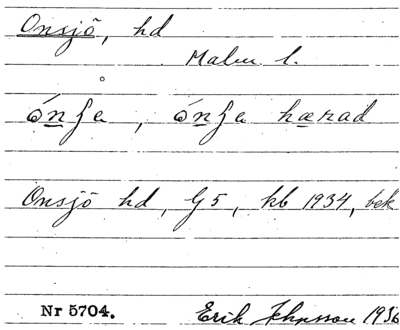 Onsjö, hd
Malm. l.
ónʃa, ónʃa hærad
Onsjö hd, G5, kb 1934, bek
Nr 5704. Erik Johnsson 1936